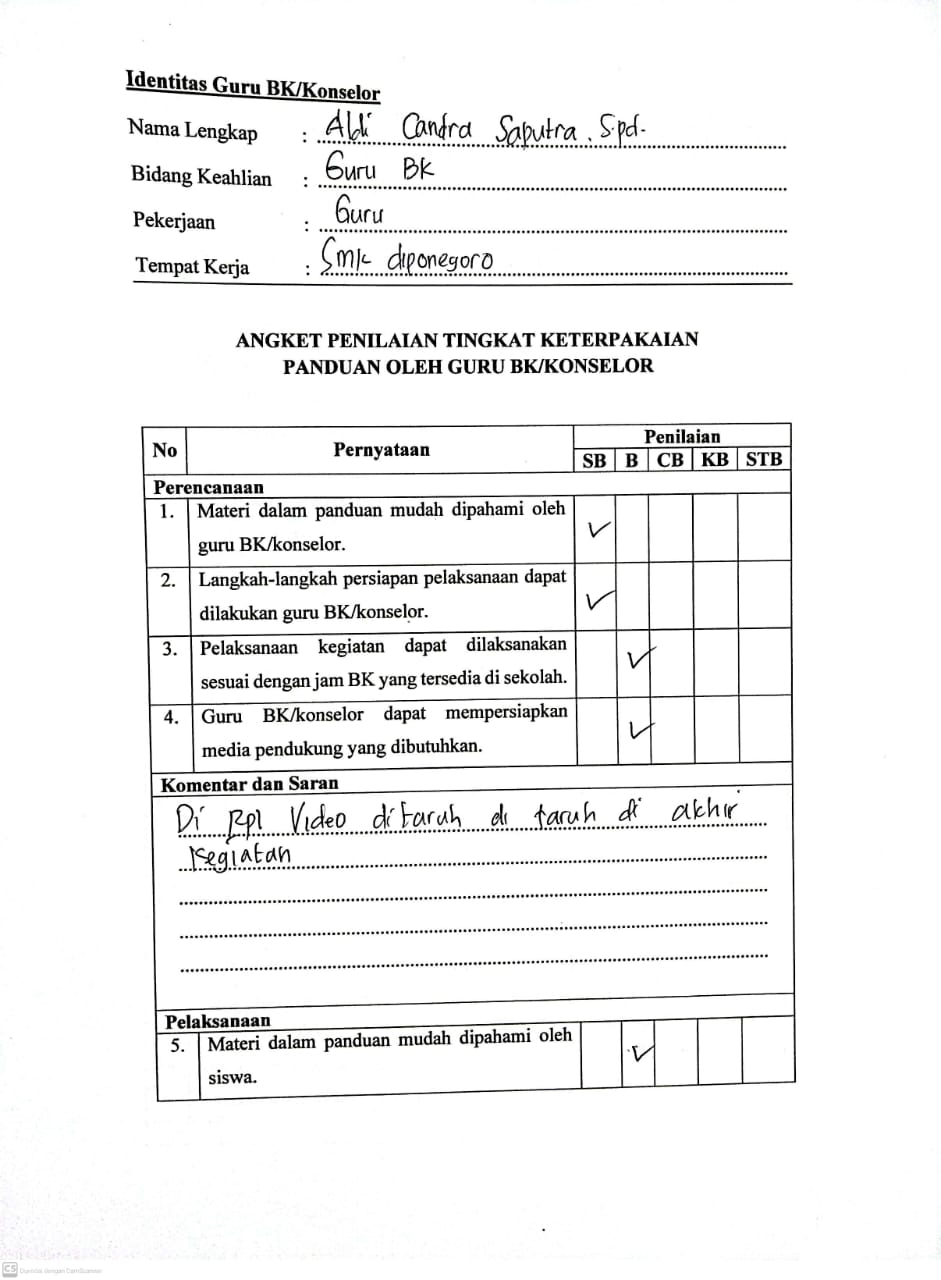 Identitas Guru BK/Konselor
Nama Lengkap : Abdi Candra Saputra, S.pd.
Bidang Keahlian : Guru BK
Pekerjaan : Guru
Tempat Kerja : Smk diponegoro
ANGKET PENILAIAN TINGKAT KETERPAKAIAN
PANDUAN OLEH GURU BK/KONSELOR
No Pernyataan Penilaian
SB B CB KB STB
Perencanaan
1. Materi dalam panduan mudah dipahami oleh
guru BK/konselor. ✓
2. Langkah-langkah persiapan pelaksanaan dapat
dilakukan guru BK/konselor. ✓
3. Pelaksanaan kegiatan dapat dilaksanakan
sesuai dengan jam BK yang tersedia di sekolah. ✓
4. Guru BK/konselor dapat mempersiapkan
media pendukung yang dibutuhkan. ✓
Komentar dan Saran
Di Rpl Video ditaruh di taruh di akhir
kegiatan
Pelaksanaan
5. Materi dalam panduan mudah dipahami oleh
siswa. ✓
CS Dipindai dengan CamScanner